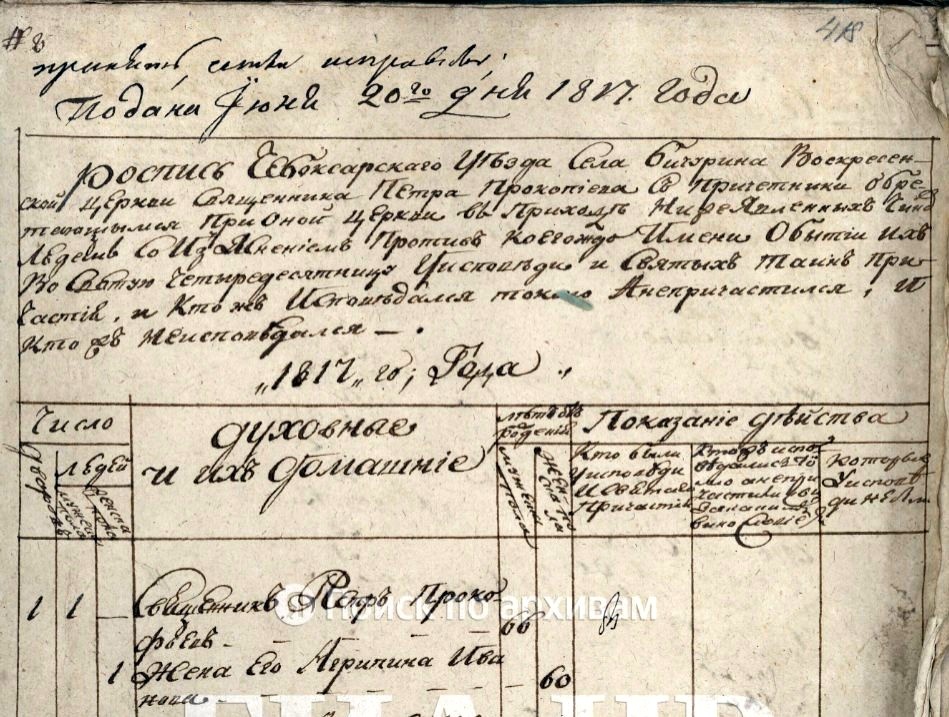 418
принять сентя исправѣ
Подана Їюня 20го дни 1817. года
Роспись Чебоксарскаго Уѣзда Села Бичурина Воскресен-
ской церкви Священника Петра Прокопіева С Причетники обре
тающимся При Оной церкви въ Приходѣ Нижеявленныхъ Чино
Людеивъ Со Изъясненіемъ Противъ Коегождо Имени О бытіи ихъ
Во Святую Четыредесятницу У исповѣди и Святыхъ таинъ При-
частія, и Кто жъ Исповѣдался токмо А непричастился, И
Кто жъ Неисповѣдался — .
„1817„ го; Года „
Число
духовные
и ихъ домашніе
лѣтъ отъ
рожденія
Показаніе дѣйства
дворовъ
людей
мужеска
пола
женска
пола
мужеска
пола
женска
пола
Кто были
У исповѣди
И Святаго
Причастія
Кто жъ испо
вѣдались то
мо а непри
частились
и за какимъ
вино Словіемъ
которые
У исповѣ
ди не были
1 1 — Священникъ Петръ Проко-
фьевъ — — — — 66 в
1 Жена Его Агрипина Ива
нова — — — 60
Поиск по архивам